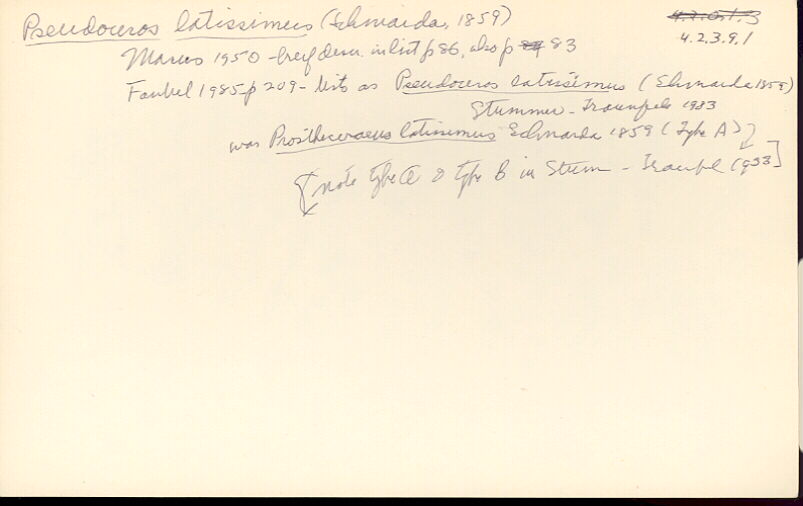 Pseudoceros latissimus (Schmarda, 1859)
4.2.3.9.1
Marcus 1950 - brief descr. in list p 86, also p 83
Faubel 1985 p 209 - lists as Pseudoceros latissimus (Schmarda 1859)
Stummer - Traunfels 1933
was Prostheceraeus latissimus Schmarda 1859 (Type A)
[note type A & type B in Stum - Traunfel 1933]